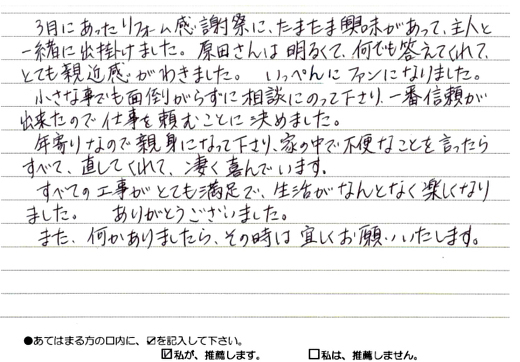 3月にあったリフォーム感謝祭に、たまたま興味があって、主人と
一緒に出掛けました。原田さんは明るくて、何でも答えてくれて、
とても親近感がわきました。 いっぺんにファンになりました。
小さな事でも面倒がらずに相談にのって下さり、一番信頼が
出来たので仕事を頼むことに決めました。
年寄りなので親身になって下さり、家の中で不便なことを言ったら
すべて、直してくれて、凄く喜んでいます。
すべての工事がとても満足で、生活がなんとなく楽しくなり
ました。 ありがとうございました。
また、何かありましたら、その時は宜しくお願いいたします。
●あてはまる方の口内に、☑を記入して下さい。
☑私が、推薦します。 □私は、推薦しません。